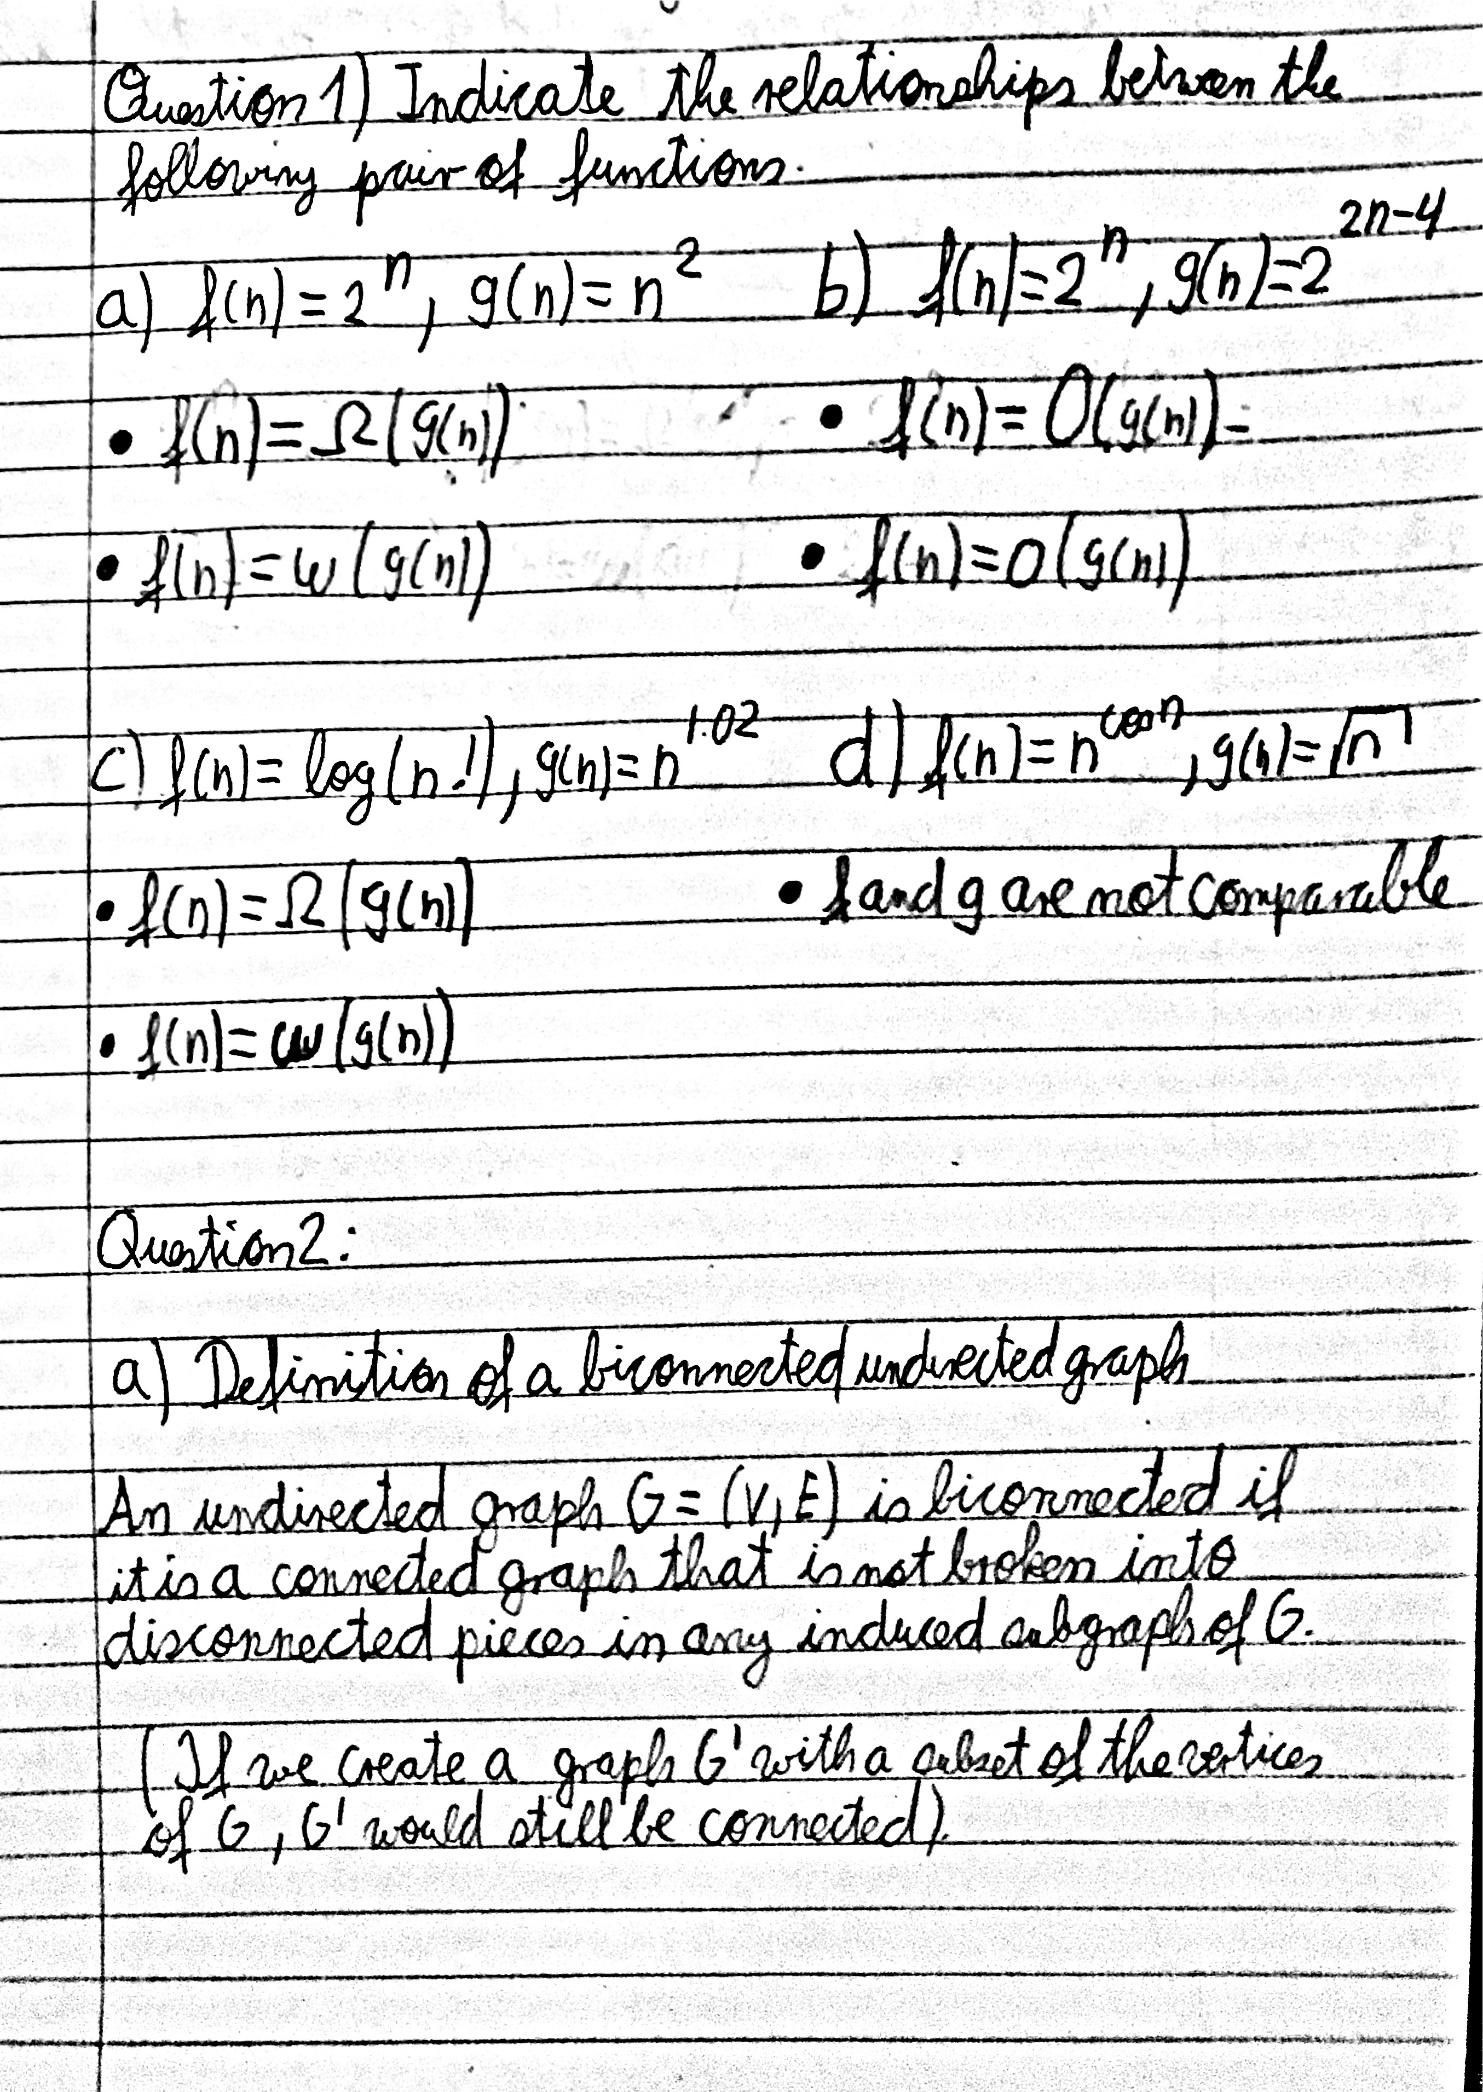 Question 1) Indicate the relationships between the
following pair of functions.
a) f(n) = 2^n, g(n) = n^2
b) f(n) = 2^n, g(n) = 2^{2n-4}
• f(n) = Ω(g(n))
• f(n) = O(g(n))
• f(n) = ω(g(n))
• f(n) = o(g(n))
c) f(n) = log(n!), g(n) = n^{1.02}
d) f(n) = n^{cos n}, g(n) = √n
• f(n) = Ω(g(n))
• f and g are not comparable
• f(n) = ω(g(n))
Question 2:
a) Definition of a biconnected undirected graph
An undirected graph G = (V, E) is biconnected if
it is a connected graph that is not broken into
disconnected pieces in any induced subgraph of G.
(If we create a graph G' with a subset of the vertices
of G, G' would still be connected).